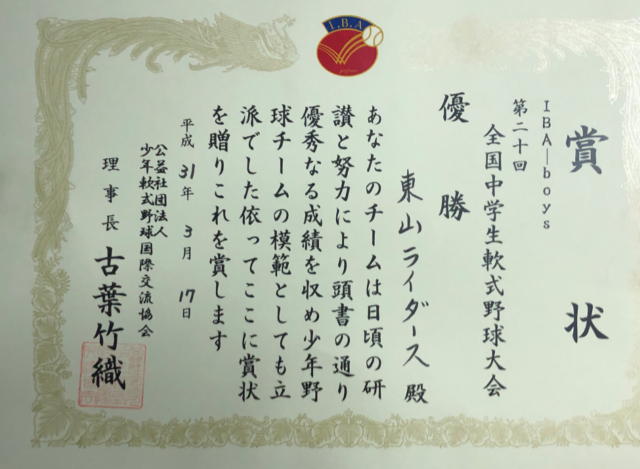 I.B.A
賞状
IBA-boys
第二十回
全国中学生軟式野球大会
優勝
東山ライダース殿
あなたのチームは日頃の研
讃と努力により頭書の通り
優秀なる成績を収め少年野
球チームの模範としても立
派でした依ってここに賞状
を贈りこれを賞します
平成31年3月17日
公益社団法人
少年軟式野球国際交流協会
理事長 古葉竹織